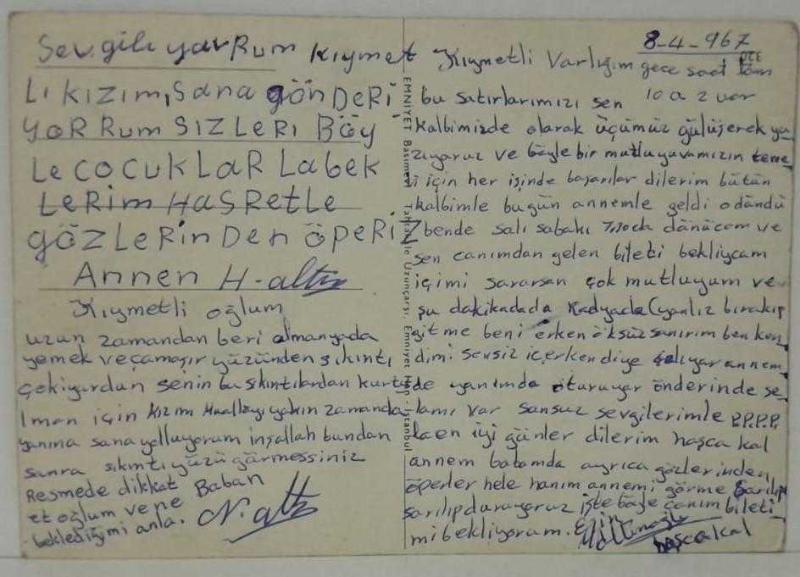 Sevgili yavrum kıymet
Lı kızım, sana gönderi
yorrum sizleri böy
Le cocuklar Labek
Lerim hasretle
gözlerinden öperiz
Annen H-altın
Kıymetli oğlum
uzun zamandan beri almanyada
yemek veçamaşır yüzünden sıkıntı
çekiyordun senin bu sıkıntılardan kurtu
lman için kızımı yakın zamanda
yanına sana yolluyorum inşallah bundan
sonra sıkıntı yüzü görmessiniz
Resmede dikkat Baban
et oğlum ve ne N. altın
beklediğimi anla.
EMNİYET Basımevi Uzunçarşı Emniyet İstanbul
8-4-967
Kıymetli Varlığım gece saat tam
bu satırlarımızı sen 10 a 2 var
kalbimizde olarak üçümüz gülüşerek ya
zıyoruz ve böyle bir mutlu yuvamızın teme
li için her işinde başarılar dilerim bütün
kalbimle bugün annemle geldi o döndü
bende salı sabahı dönecem ve
sen canımdan gelen bileti bekliycam
içimi sararsan çok mutluyum ve
şu dakikadada Radyoda (yanlız bırakıp
gitme beni erken öksüz sanırım ben ken
dimi sensiz içerken diye çalıyor annem
de yanımda oturuyor önderinde se
lamı var sonsuz sevgilerimle P.P.P.P
en iyi günler dilerim hoşca kal
annem babamda ayrıca gözlerinden
öperler hele hanım annemi görme sarılıp
sarılıp duruyoruz işte böyle canım bileti
mi bekliyorum. Eşin
hoşcakal